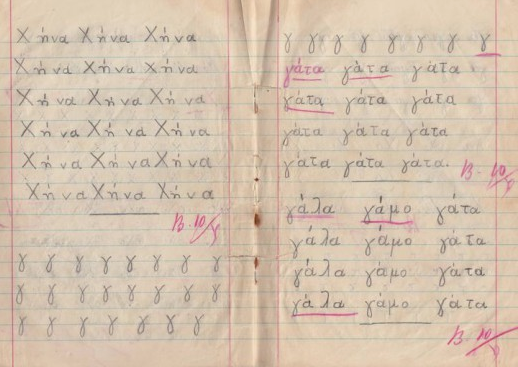 Χήνα Χήνα Χήνα
Χήνα Χήνα Χήνα
Χήνα Χήνα Χήνα
Χήνα Χήνα Χήνα
Χήνα Χήνα Χήνα
Χήνα Χήνα Χήνα
γ γ γ γ γ γ γ γ
γ γ γ γ γ γ γ γ
γ γ γ γ γ γ γ
γ γ γ γ γ γ γ γ
γάτα γάτα γάτα
γάτα γάτα γάτα
γάτα γάτα γάτα
γάτα γάτα γάτα.
γάλα γάμο γάτα
γάλα γάμο γάτα
γάλα γάμο γάτα
γάλα γάμο γάτα